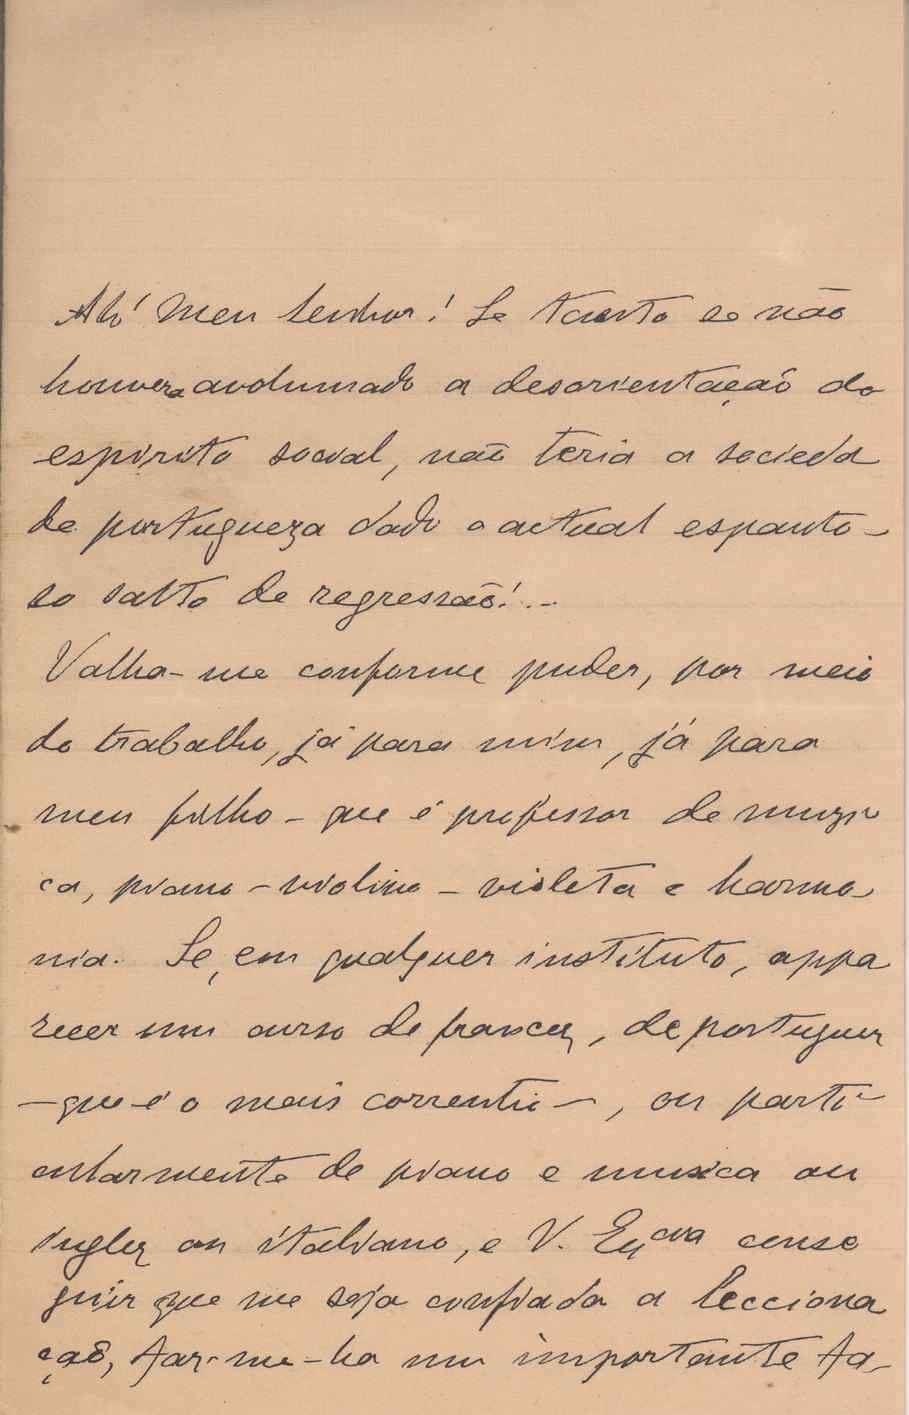 Ah! Meu Senhor! Se tanto se não
houvera avolumado a desorientação do
espirito social, não teria a socieda
de portugueza dado o actual espanto-
so salto de regressão!...
Valha-me conforme puder, por meio
do trabalho, já para mim, já para
meu filho - que é professor de muzi
ca, piano - violino - violeta e harmo-
nia. Se, em qualquer instituto, appa
recer um curso de francez, de portuguez
- que é o mais corrente -, ou parti-
cularmente de piano e musica ou
inglez ou italiano, e V. Exᶜⁱᵃ conse
guir que me seja confiada a lecciona
ção, far-me-ha um importante fa-